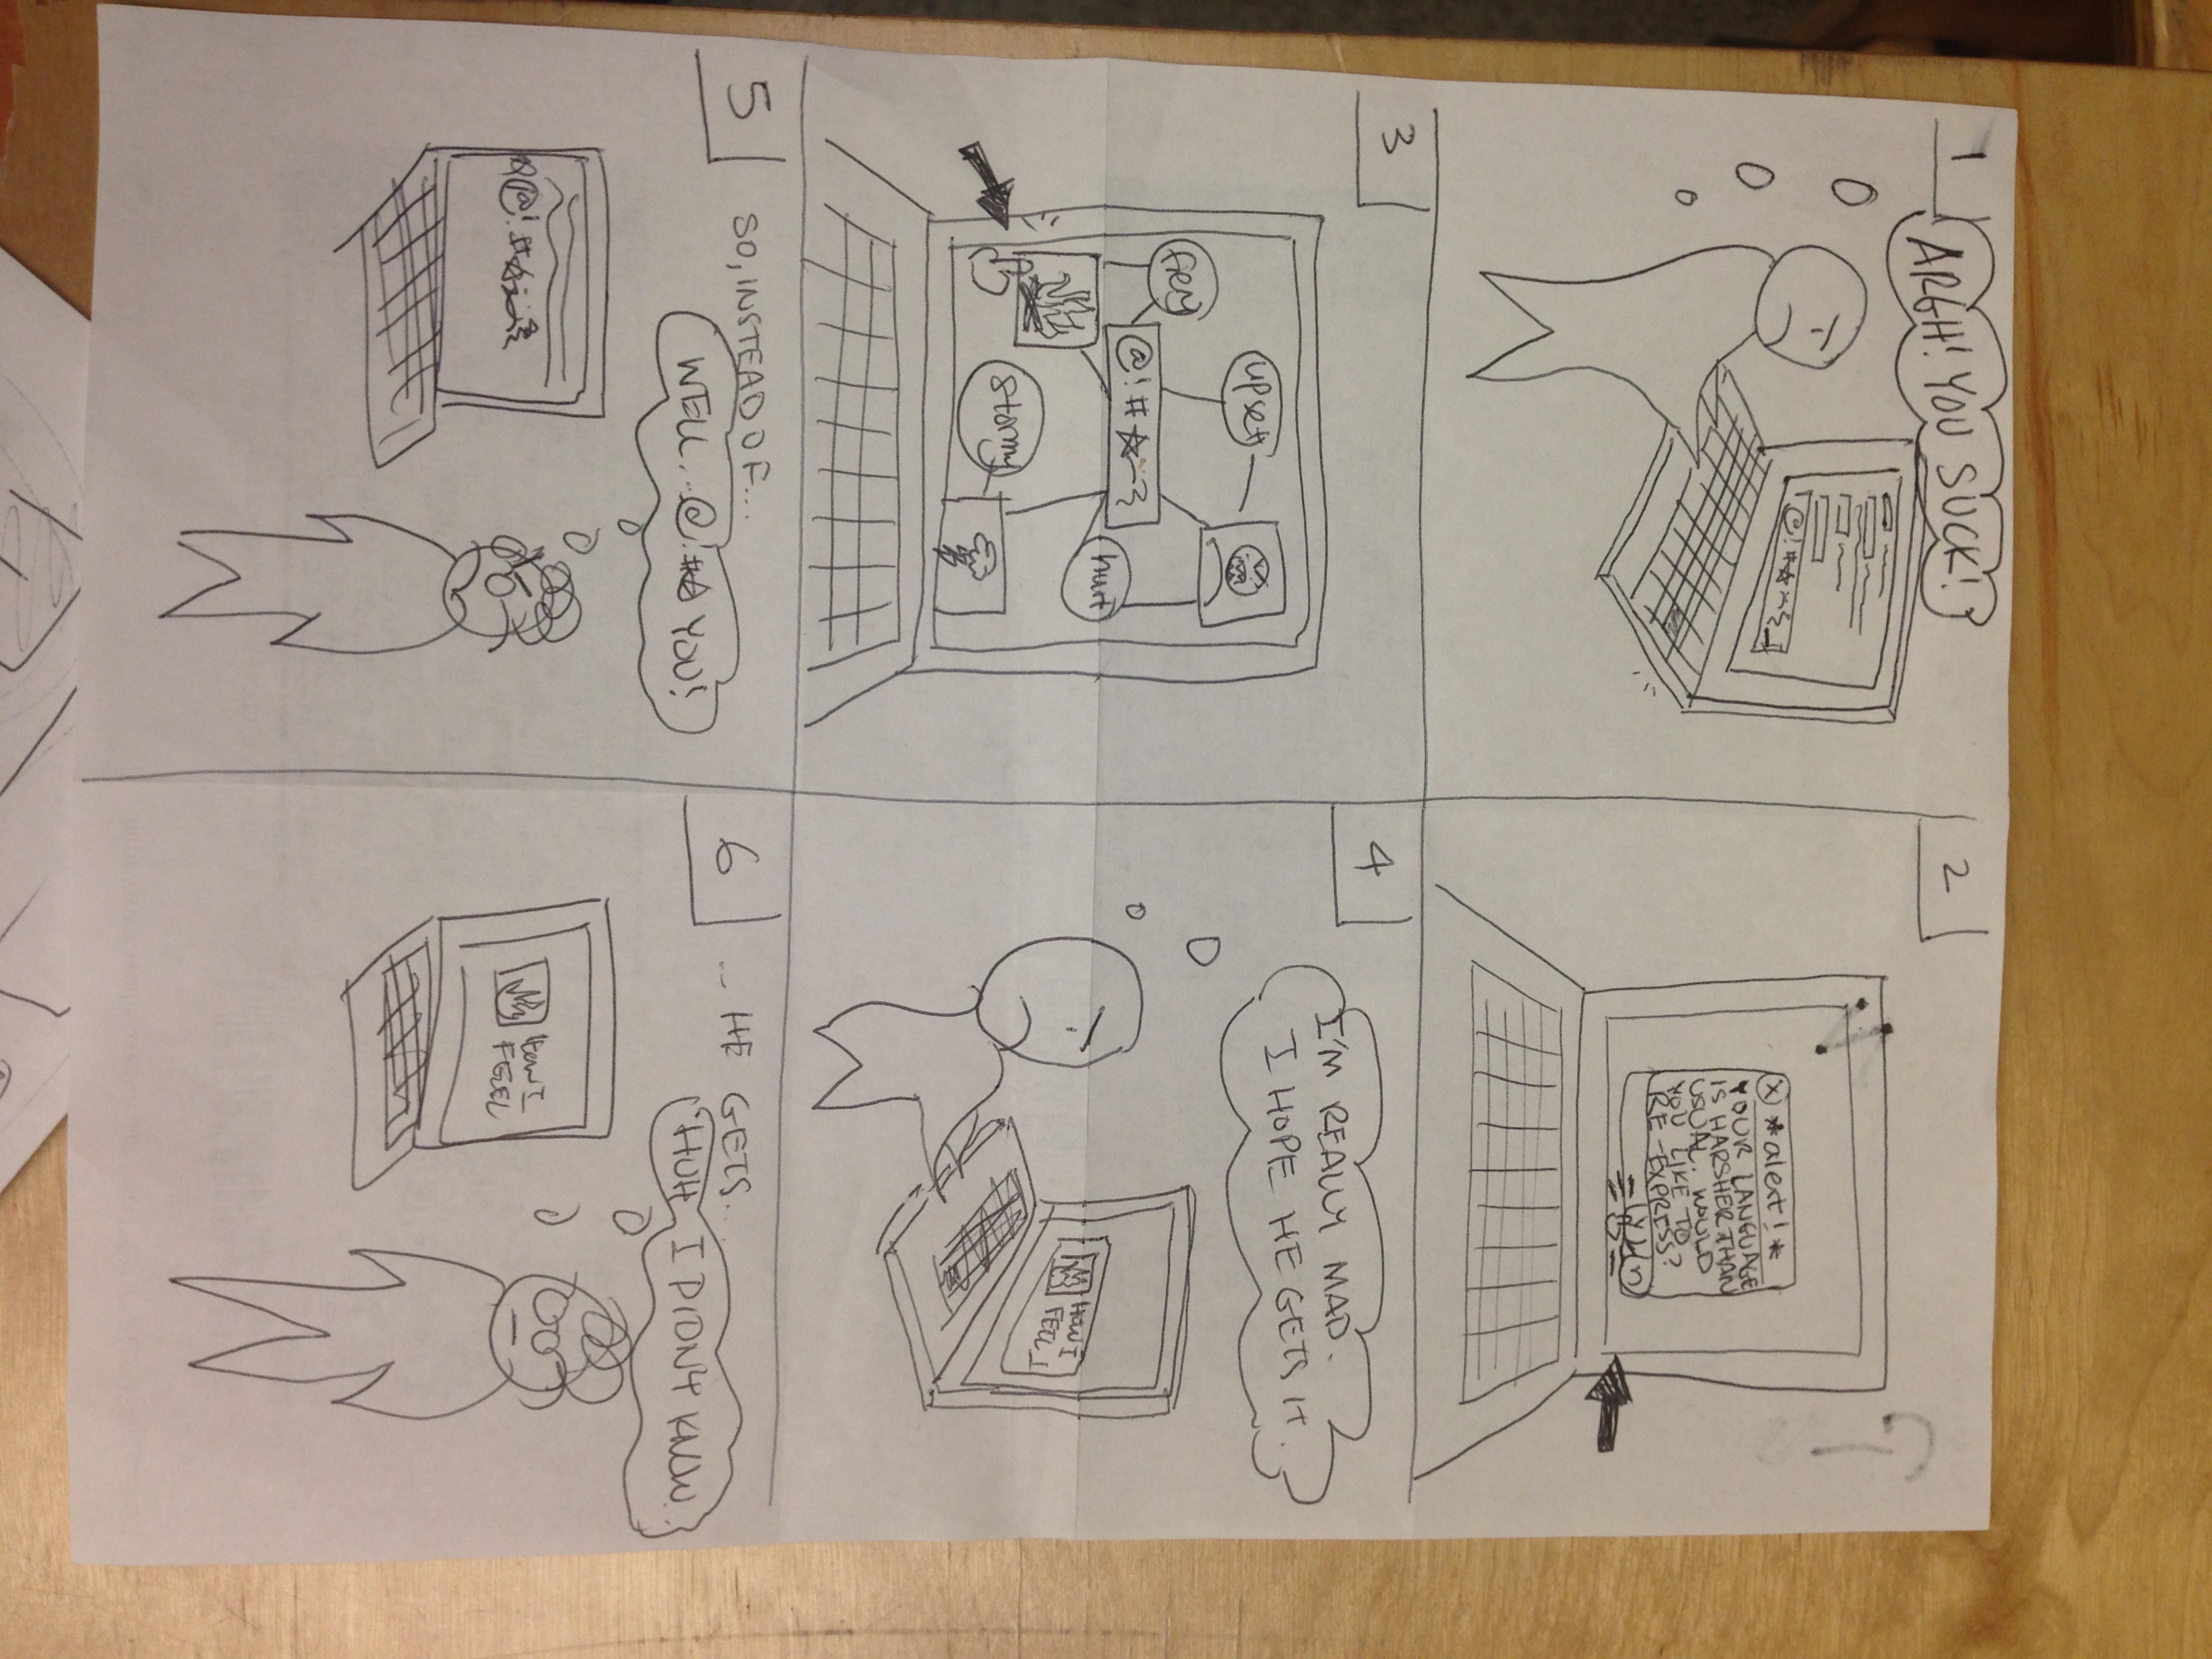 1
ARGH! YOU SUCK!
@!#☆~{_
2
(x) *alert!*
YOUR LANGUAGE
IS HARSHER THAN
USUAL. WOULD
YOU LIKE TO
RE-EXPRESS?
y/n
3
fiery
upset
@!#☆~{
stormy
hurt
4
I'M REALLY MAD.
I HOPE HE GETS IT.
HOW I
FEEL
5
SO, INSTEAD OF...
WELL...@!#☆ YOU!
6
... HE GETS...
HUH I DIDN'T KNOW.
HOW I
FEEL